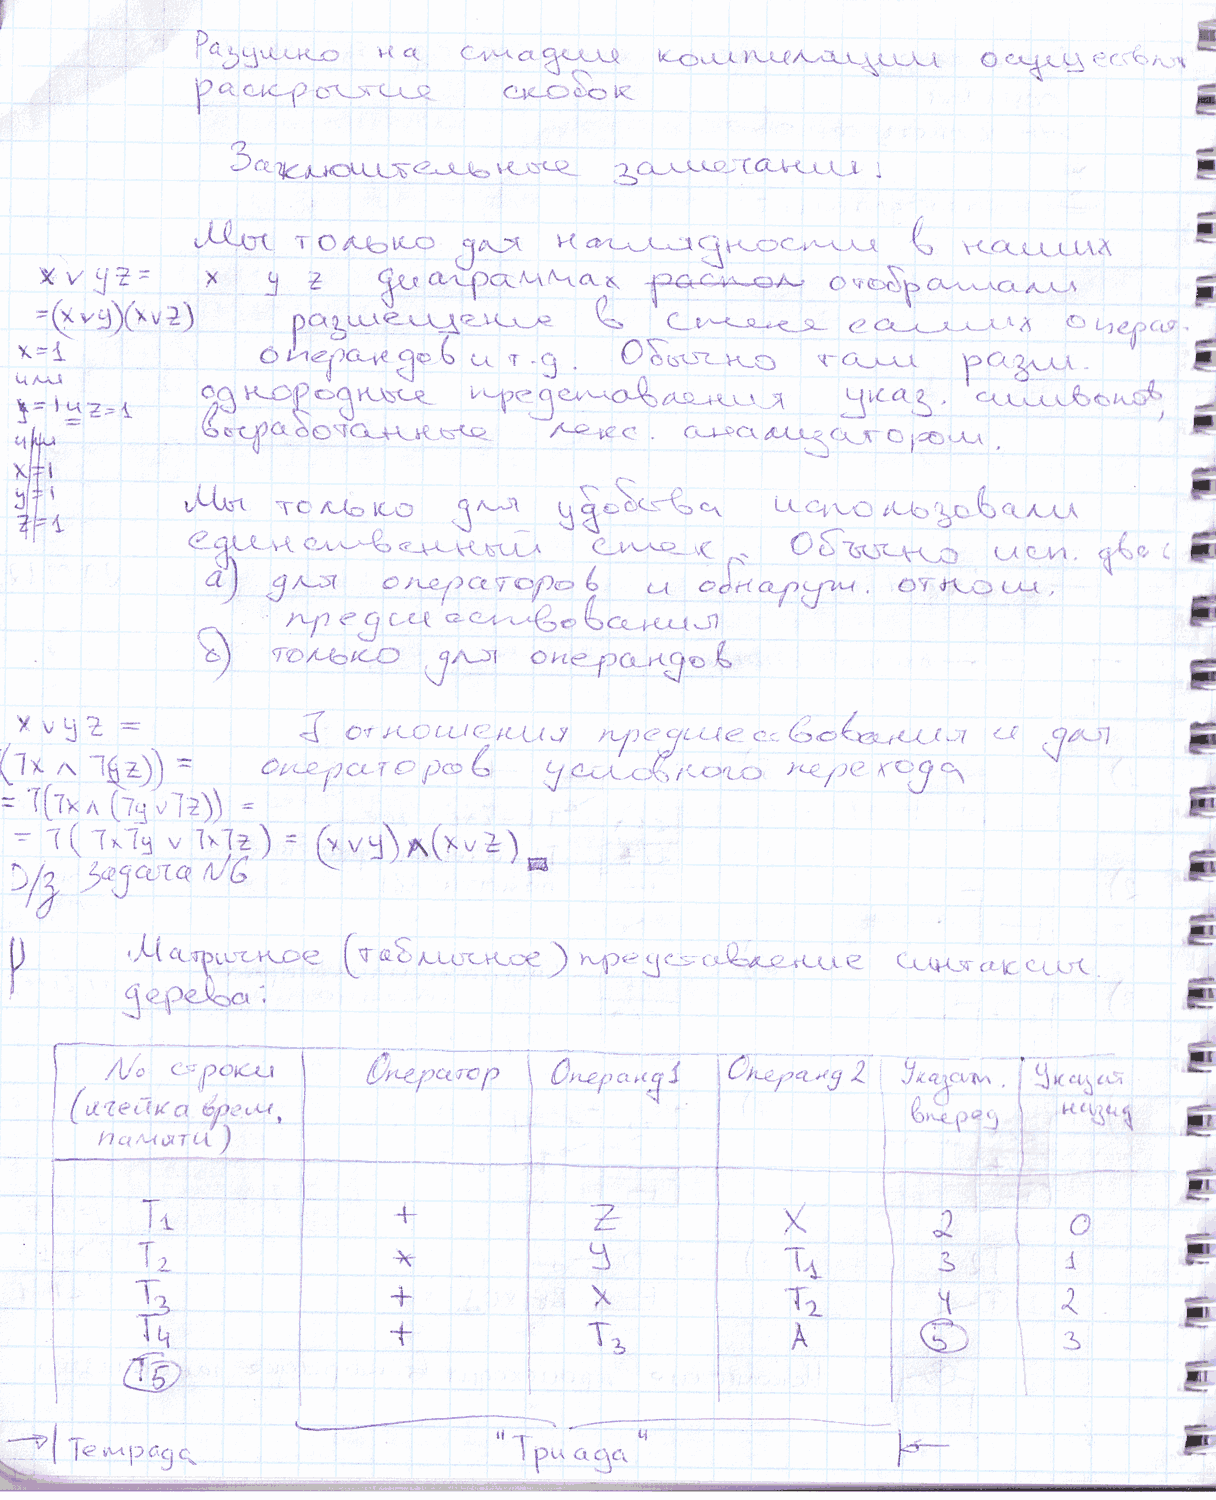 Разумно на стадии компиляции осуществл
раскрытие скобок
Заключительные замечания:
Мы только для наглядности в наших
x y z диаграммах распол отображали
размещение в стеке самих операт.
операндов и т.д. Обычно там разм.
однородные представления указ. символов,
выработанные лекс. анализатором.
x∨yz=
=(x∨y)(x∨z)
x=1
или
y=1 и z=1
или
x=1
y=1
z=1
Мы только для удобства использовали
единственный стек. Обычно исп. два с
а) для операторов и обнаруж. отнош.
предшествования
б) только для операндов
∃ отношения предшествования и для
операторов условного перехода
x∨yz =
(7x ∧ 7(yz)) =
= 7(7x ∧ (7y∨7z)) =
= 7(7x7y ∨ 7x7z) = (x∨y)∧(x∨z)
Д/з задача №6
Матричное (табличное) представление синтаксич.
дерева:
№ строки (ячейка врем. памяти) Оператор Операнд1 Операнд2 Указат. вперед Указат назад
T1 + Z X 2 0
T2 * Y T1 3 1
T3 + X T2 4 2
T4 + T3 A 5 3
T5
→| Тетрада "Триада" |←